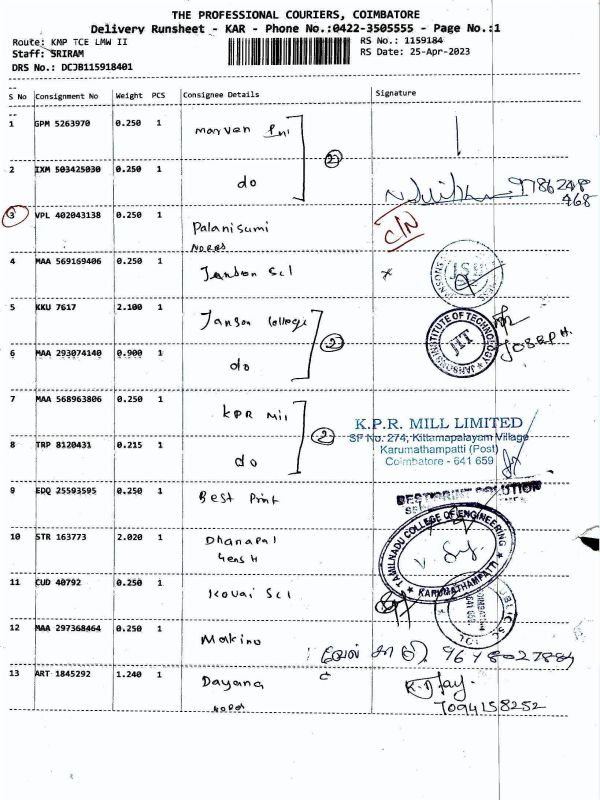 THE PROFESSIONAL COURIERS, COIMBATORE
Delivery Runsheet - KAR - Phone No.:0422-3505555 - Page No.:1
Route: KMP TCE LMW II
RS No.: 1159184
Staff: SRIRAM
RS Date: 25-Apr-2023
DRS No.: DCJB115918401
S No Consignment No Weight PCS Consignee Details Signature
1 GPM 5263970 0.250 1 
2 IXM 503425030 0.250 1 do (2) 9786248
468
3 VPL 402043138 0.250 1 Palanisami C/N
4 MAA 569169406 0.250 1 Scl JSB
5 KKU 7617 2.100 1 Janson College
INSTITUTE OF TECHNOLOGY JIT
6 MAA 293074140 0.900 1 do (2) JOSEPH.
7 MAA 568963806 0.250 1 KPR Mil
K.P.R. MILL LIMITED
SF No. 274, Kittampalayam Village
Karumathampatti (Post)
Coimbatore - 641 659
8 TRP 8120431 0.215 1 do (2)
9 EDQ 25593595 0.250 1 Best Print
BEST PRINT SOLUTION
10 STR 163773 2.020 1 Dhanapal
TAMILNADU COLLEGE OF ENGINEERING
KARUMATHAMPATTI
11 CUD 40792 0.250 1 Kovai Scl
12 MAA 297368464 0.250 1 Makino
13 ART 1845292 1.240 1 Dayana
7094158252